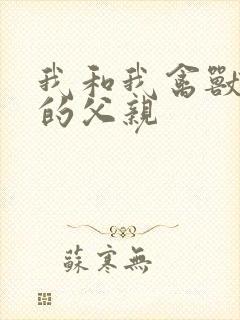 我和我禽獸
的父親
蘇寒無